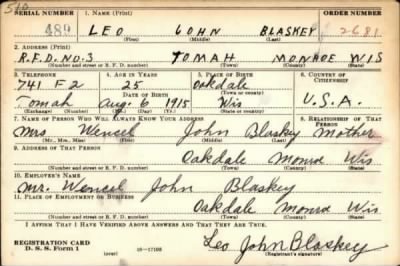 510
SERIAL NUMBER 1. NAME (Print) ORDER NUMBER
489 LEO JOHN BLASKEY 2681
(First) (Middle) (Last)
2. ADDRESS (Print)
R.F.D. NO. 3 TOMAH MONROE WIS
(Number and street or R. F. D. number) (Town) (County) (State)
3. TELEPHONE 4. AGE IN YEARS 5. PLACE OF BIRTH 6. COUNTRY OF CITIZENSHIP
741 F2 25 Oakdale
DATE OF BIRTH (Town or county)
Tomah Aug. 6 1915 Wis U.S.A.
(Exchange) (Number) (Mo.) (Day) (Yr.) (State or country)
7. NAME OF PERSON WHO WILL ALWAYS KNOW YOUR ADDRESS 8. RELATIONSHIP OF THAT PERSON
Mrs Wencel John Blaskey Mother
(Mr., Mrs., Miss) (First) (Middle) (Last)
9. ADDRESS OF THAT PERSON
Oakdale Monroe Wis
(Number and street or R. F. D. number) (Town) (County) (State)
10. EMPLOYER'S NAME
Mr. Wencel John Blaskey
11. PLACE OF EMPLOYMENT OR BUSINESS
Oakdale Monroe Wis
(Number and street or R. F. D. number) (Town) (County) (State)
I AFFIRM THAT I HAVE VERIFIED ABOVE ANSWERS AND THAT THEY ARE TRUE.
REGISTRATION CARD
D. S. S. Form 1 16—17105 Leo John Blaskey
(over) (Registrant's signature)